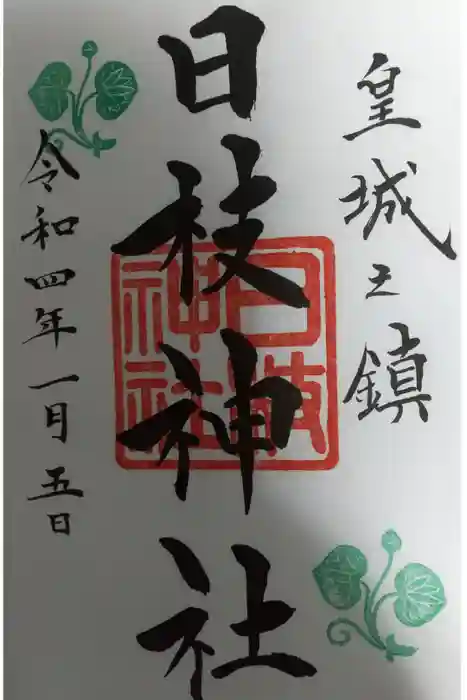 皇城之鎮
日枝神社
日枝神社
令和四年一月五日